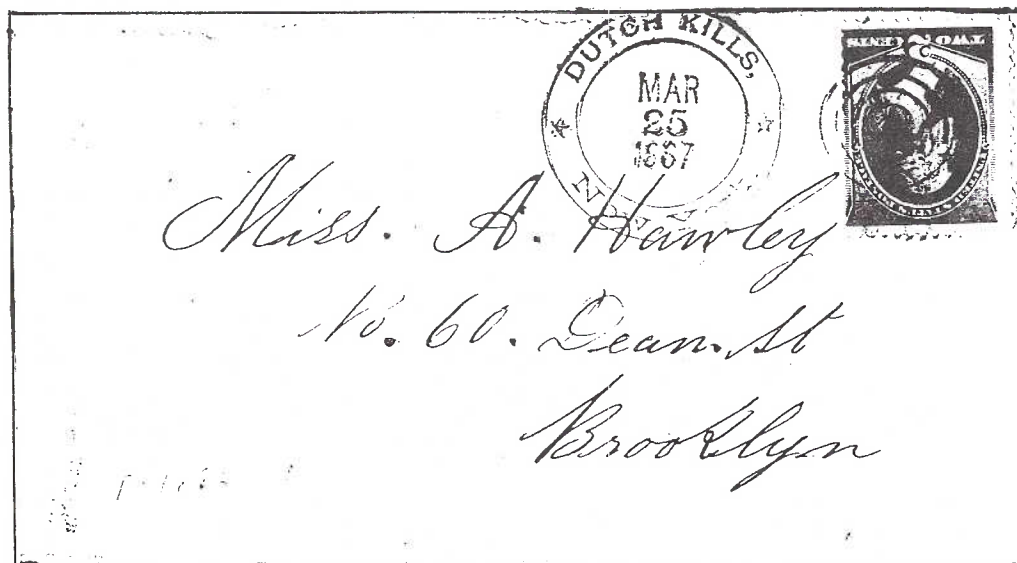 DUTCH KILLS,
MAR
25
1867
N.Y.
TWO CENTS
Miss. A. Hawley
No. 60. Dean. St
Brooklyn